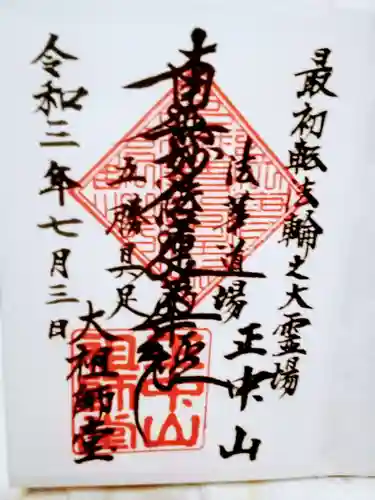 最初転法輪之大霊場
法華道場
正中山
南無妙法蓮華経
五勝具足
大祖師堂
令和三年七月三日